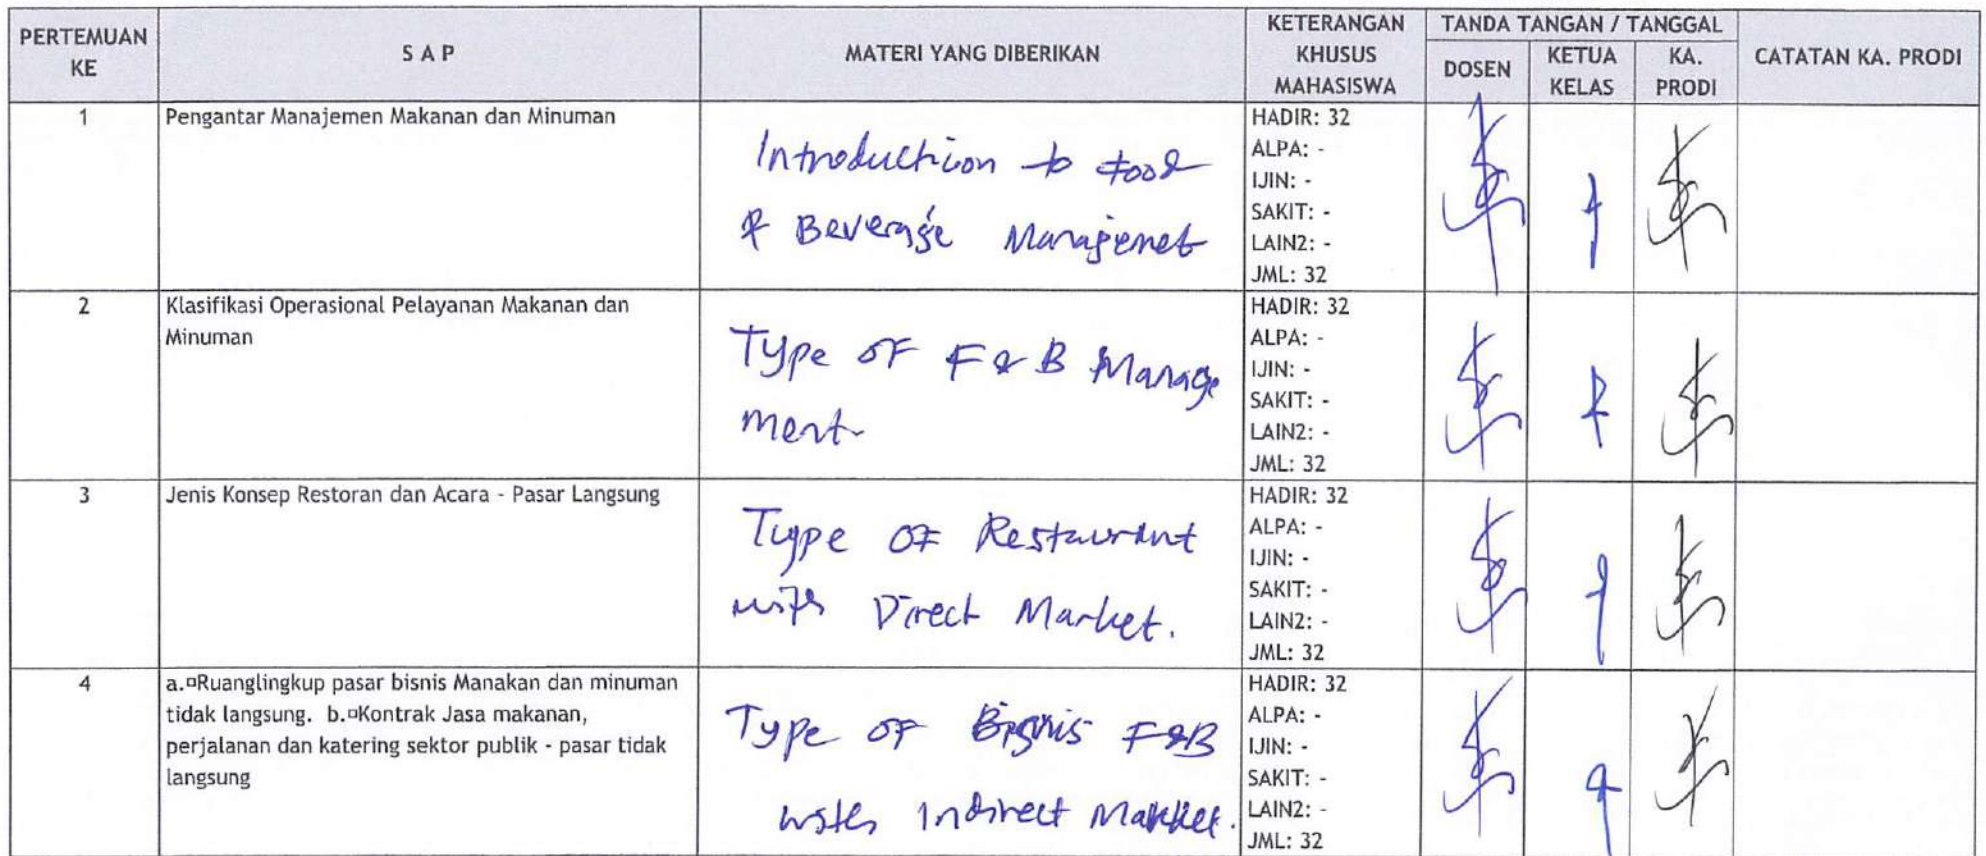 PERTEMUAN KE
S A P
MATERI YANG DIBERIKAN
KETERANGAN KHUSUS MAHASISWA
TANDA TANGAN / TANGGAL
DOSEN
KETUA KELAS
KA. PRODI
CATATAN KA. PRODI
1
Pengantar Manajemen Makanan dan Minuman
Introduchion to food
& Beverage Manajemet
HADIR: 32
ALPA: -
IJIN: -
SAKIT: -
LAIN2: -
JML: 32
2
Klasifikasi Operasional Pelayanan Makanan dan
Minuman
Type OF F & B Manage
ment
HADIR: 32
ALPA: -
IJIN: -
SAKIT: -
LAIN2: -
JML: 32
3
Jenis Konsep Restoran dan Acara - Pasar Langsung
Type OF Restaurant
with Direct Market.
HADIR: 32
ALPA: -
IJIN: -
SAKIT: -
LAIN2: -
JML: 32
4
a.¤Ruanglingkup pasar bisnis Manakan dan minuman
tidak langsung. b.¤Kontrak Jasa makanan,
perjalanan dan katering sektor publik - pasar tidak
langsung
Type OF Bisnis F&B
with Indirect Market.
HADIR: 32
ALPA: -
IJIN: -
SAKIT: -
LAIN2: -
JML: 32